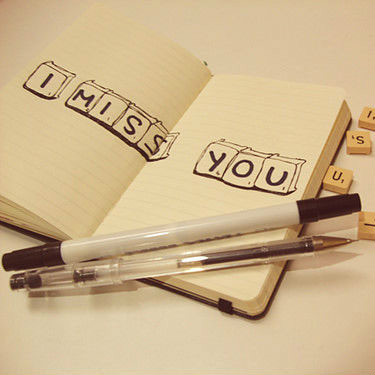 I MISS YOU
I
S
U